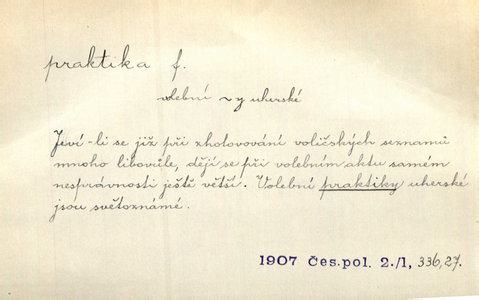 praktika f.
volební ~y uherské
Jeví-li se již při zhotovování voličských seznamů
mnoho libovůle, dějí se při volebním aktu samém
nesprávnosti ještě větší. Volební praktiky uherské
jsou světoznámé.
1907 čes.pol. 2./1, 336,27.